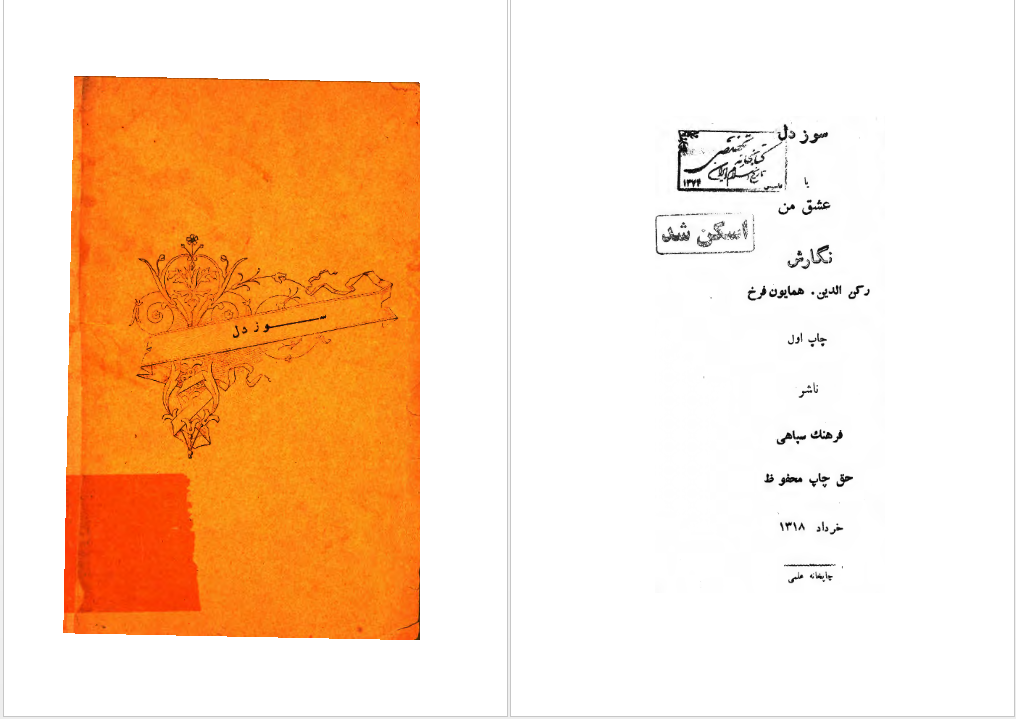 سوز دل
سوز دل
یا
عشق من
نگارش
رکن الدین . همایون فرخ
چاپ اول
ناشر
فرهنك سپاهی
حق چاپ محفوظ
خرداد ۱۳۱۸
چاپخانه علمی
کتابخانه تخصصی
تاریخ اسلام و ایران
۱۳۷۴
اسکن شد